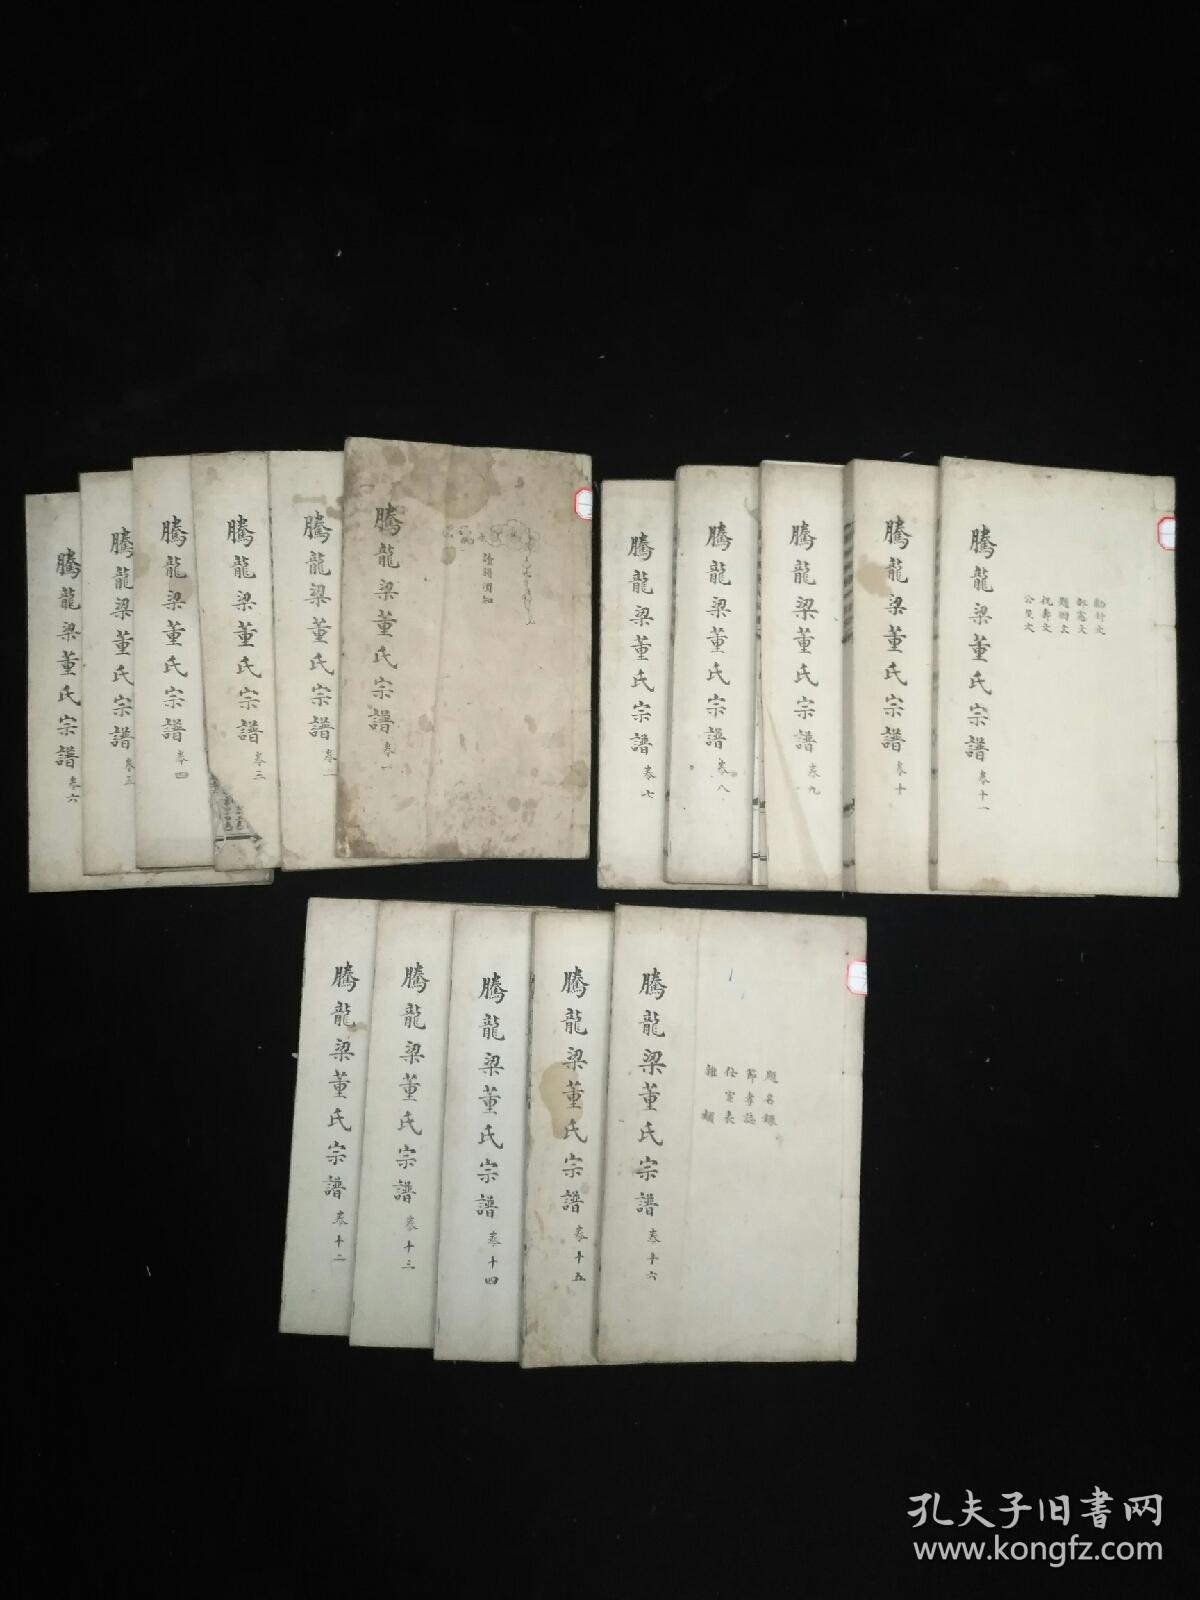 騰龍梁董氏宗譜 卷一
讀譜須知
騰龍梁董氏宗譜 卷二
騰龍梁董氏宗譜 卷三
騰龍梁董氏宗譜 卷四
騰龍梁董氏宗譜 卷五
騰龍梁董氏宗譜 卷六
騰龍梁董氏宗譜 卷七
騰龍梁董氏宗譜 卷八
騰龍梁董氏宗譜 卷九
騰龍梁董氏宗譜 卷十
騰龍梁董氏宗譜 卷十一
祝壽文
騰龍梁董氏宗譜 卷十二
騰龍梁董氏宗譜 卷十三
騰龍梁董氏宗譜 卷十四
騰龍梁董氏宗譜 卷十五
騰龍梁董氏宗譜 卷十六
題名錄
節孝誌
雜類
孔夫子旧書网
www.kongfz.com